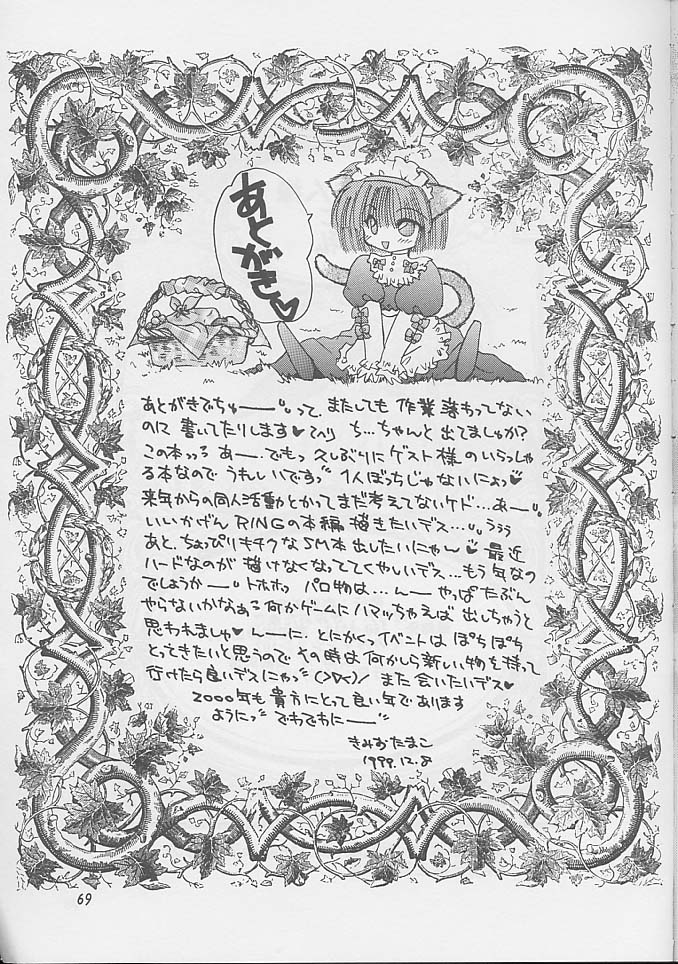 あとがき♥
あとがきでちゅー〜"って、またしても 作業 落もってない
のに 書いてたりします♥てへっ ち…ちゃんと出てましゅか?
この本っっる あー、でもっ 久しぶりに ゲスト様 のいらっしゃ
る本なので うれしいですっ" 1人ぼっちじゃないにょっ♥
来年からの同人活動とかってまだ考えてないケド…あー〜"。
いいかげん RINGの本編 描きたいデス…"。うぅぅ
あと、ちょっぴりキチクなSM本 出したいにゃ〜♥ 最近
ハードなのが 描けなくなっててくやしいデス…もう 気なの
でしょうかー〜" トホホっ パロ物は…んー やっぱ たぶん
やらないかなぁ る 何かゲームに ハマッちゃえば 出しちゃうと
思われましゅ♥ んーに、とにかくっ イベントは ぽちぽち
とってきたいと思うので その時は何かしら新しい物を持って
行けたら良いデスにゃっ" (>∇<)/ また会いたいデス♥
2000年も 貴方にとって 良い年であります
ように"。 でわでわにー〜"
きみおたまこ
1999.12.8
69